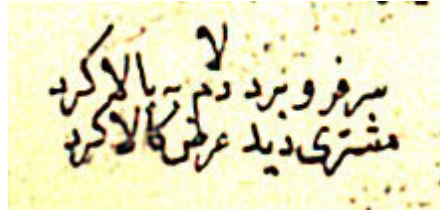 سر فرو برد دم به بالا کرد
مشتری دید عرض کالا کرد